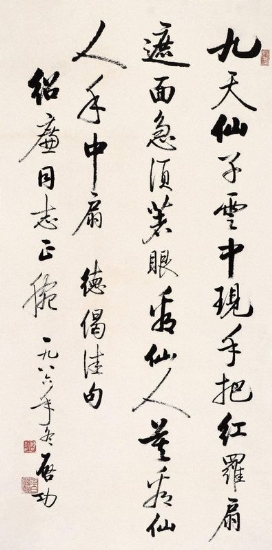 九天仙子雲中現手把紅羅扇
遮面急須著眼看仙人莫看仙
人手中扇 德偈佳句
紹廉同志正腕 一九八六年冬 啓功